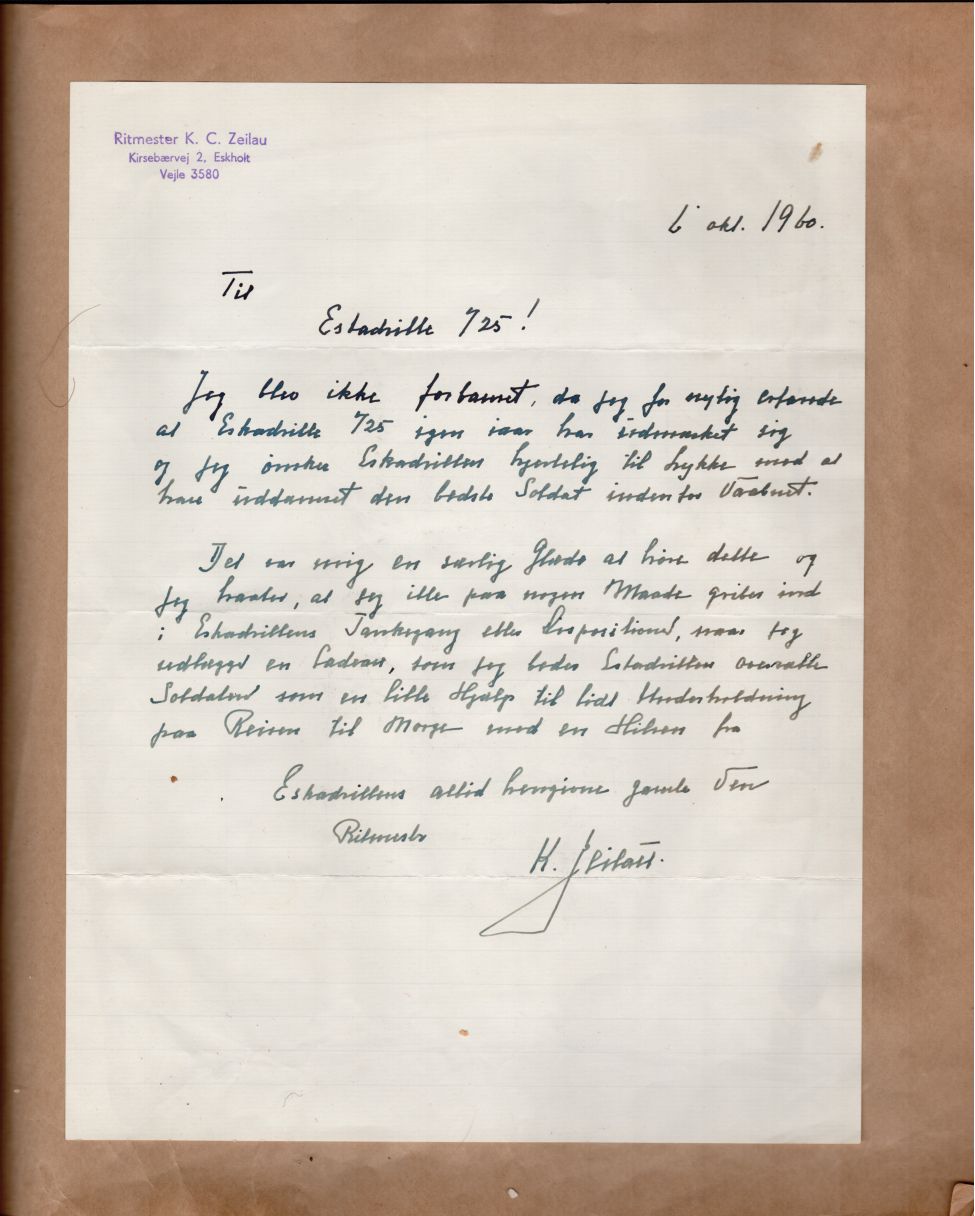 Ritmester K. C. Zeilau
Kirsebærvej 2, Eskholt
Vejle 3580
6' okt. 1960.
Til
Eskadrille 1/25!
Jeg blev ikke forbauset, da jeg for nylig erfarede
at Eskadrille 1/25 igen iaar har üdmærket sig
og jeg ønsker Eskadrillen hjertelig til Lykke med at
have üddannet den bedste Soldat indenfor Vaabnet.
Det var mig en særlig Glæde at høre dette og
jeg haaber, at jeg ikke paa nogen Maade griber ind
i Eskadrillens Tankegang eller Dispositioner, naar jeg
vedlægger en Cadeau, som jeg beder Eskadrillen overrække
Soldaten som en lille Hjælp til lidt Underholdning
paa Reisen til Norge med en Hilsen fra
Eskadrillens altid hengivne gamle Ven
Ritmester
K. Zeilaü.